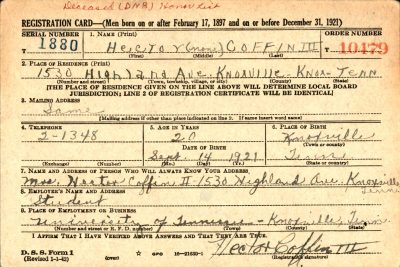 Deceased (DNB) Honor List
REGISTRATION CARD—(Men born on or after February 17, 1897 and on or before December 31, 1921)
SERIAL NUMBER 1. NAME (Print) ORDER NUMBER
1880 Hector (none) COFFIN III 10479
(First) (Middle) (Last)
2. PLACE OF RESIDENCE (Print)
1530 Highland Ave. Knoxville Knox Tenn
(Number and street) (Town, township, village, or city) (County) (State)
[THE PLACE OF RESIDENCE GIVEN ON THE LINE ABOVE WILL DETERMINE LOCAL BOARD
JURISDICTION; LINE 2 OF REGISTRATION CERTIFICATE WILL BE IDENTICAL]
3. MAILING ADDRESS
Same
[Mailing address if other than place indicated on line 2. If same insert word same]
4. TELEPHONE 5. AGE IN YEARS 6. PLACE OF BIRTH
2-1348 20 Knoxville
DATE OF BIRTH (Town or county)
Sept. 14 1921 Tenn
(Exchange) (Number) (Mo.) (Day) (Yr.) (State or country)
7. NAME AND ADDRESS OF PERSON WHO WILL ALWAYS KNOW YOUR ADDRESS
Mrs. Hector Coffin II 1530 Highland Ave. Knoxville Tenn
8. EMPLOYER'S NAME AND ADDRESS
Student
9. PLACE OF EMPLOYMENT OR BUSINESS
University of Tennessee - Knoxville, Tenn
(Number and street or R. F. D. number) (Town) (County) (State)
I AFFIRM THAT I HAVE VERIFIED ABOVE ANSWERS AND THAT THEY ARE TRUE.
D. S. S. Form 1 GPO 16—21630-1 Hector Coffin III
(Revised 1-1-42) (over) (Registrant's signature)